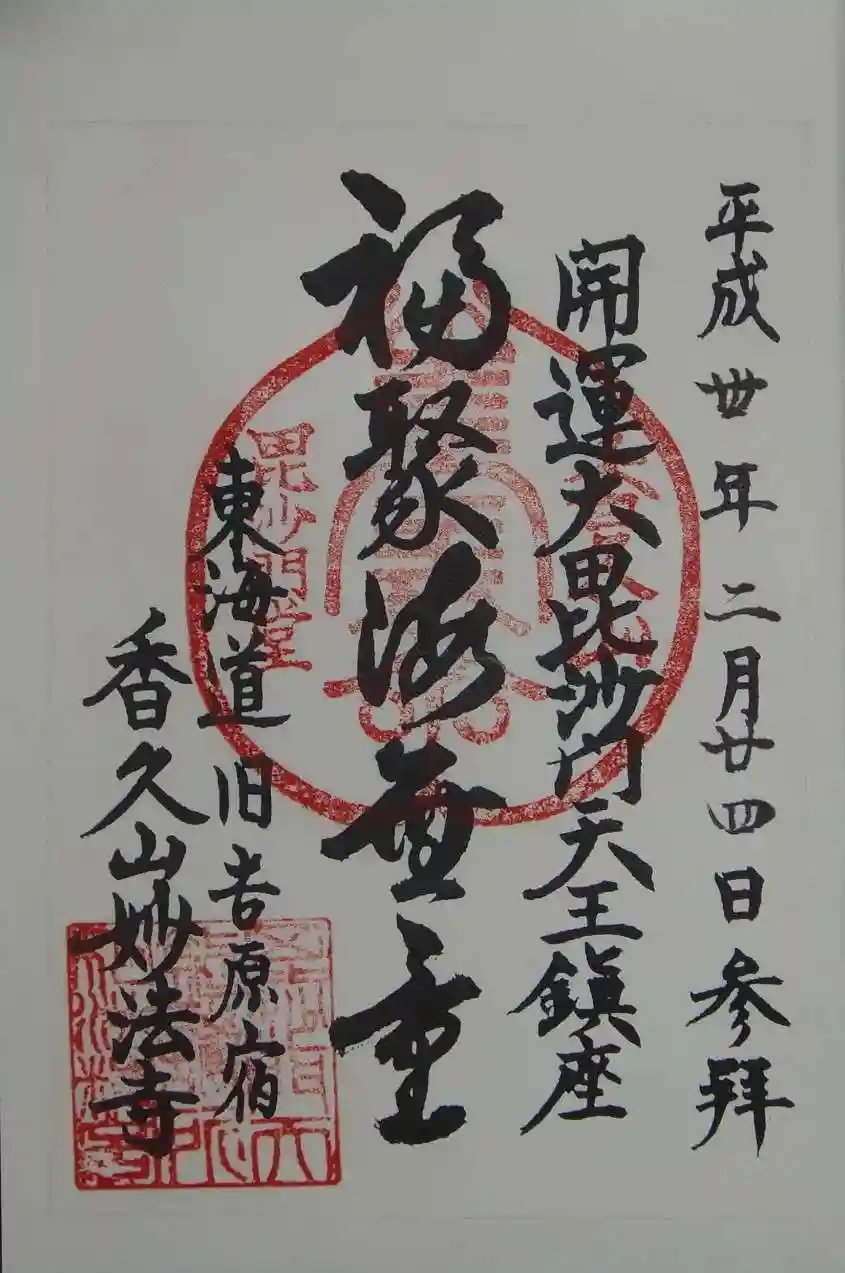 平成卅年二月廿四日参拜
開運大毘沙门天王鎮座
福聚海無量
毘沙門堂
東海道旧吉原宿
香久山妙法寺